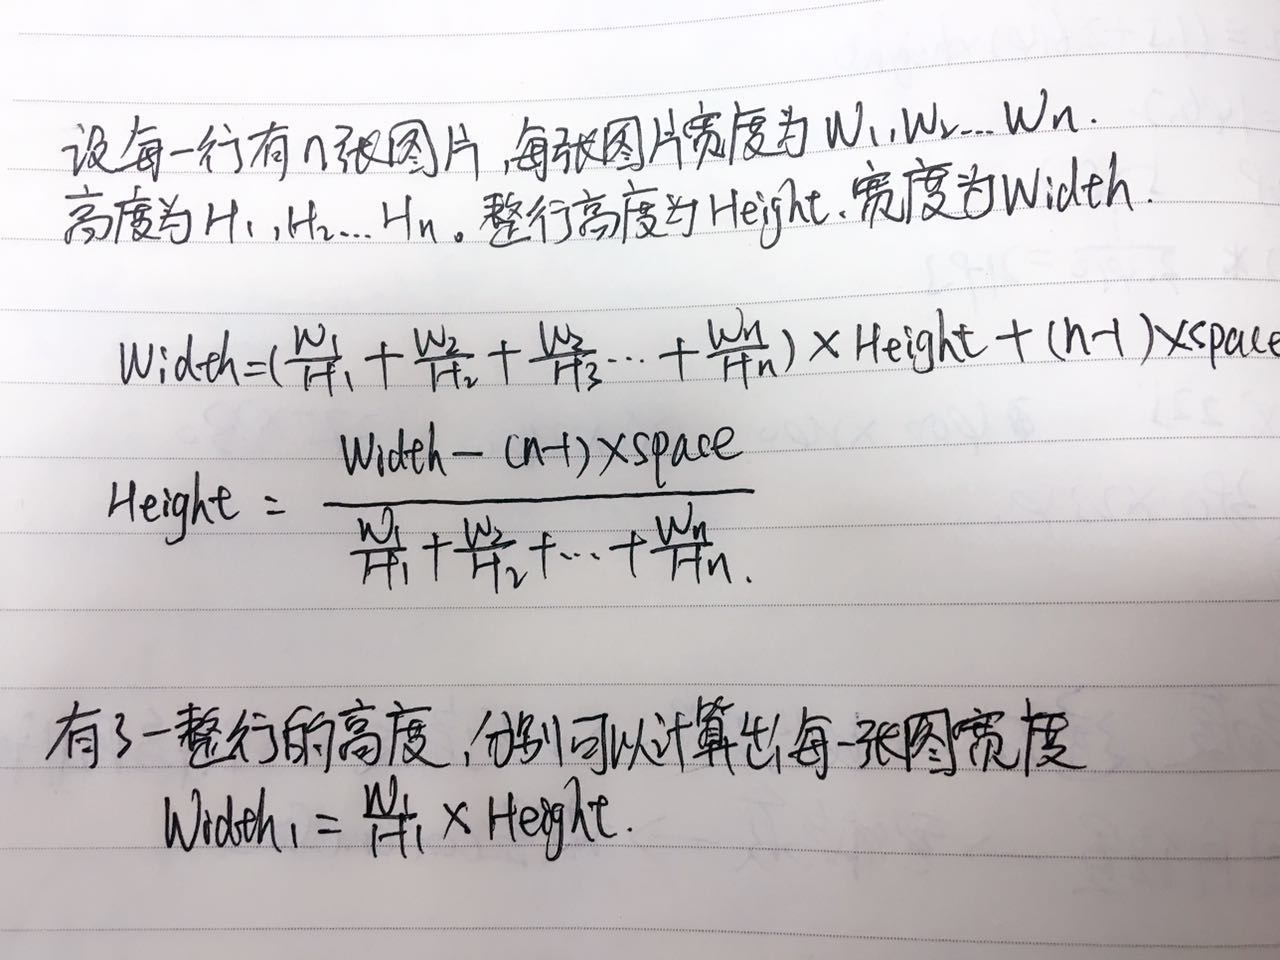 设每一行有n张图片,每张图片宽度为W1,W2...Wn.
高度为H1,H2...Hn。整行高度为Height、宽度为Width.
Width=(W1/H1+W2/H2+W3/H3...+Wn/Hn)×Height+(n-1)×space
Height=Width-(n-1)×space/W1/H1+W2/H2+...+Wn/Hn.
有了一整行的高度,分别可以计算出每一张图宽度
Width1=W1/H1×Height.